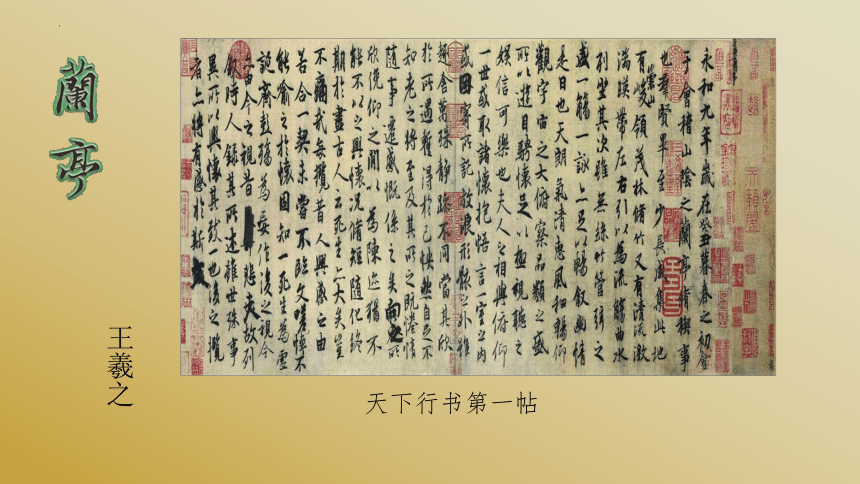 蘭亭
王羲之
永和九年歲在癸丑暮春之初會
于會稽山陰之蘭亭脩稧事
也羣賢畢至少長咸集此地
有崇山峻領茂林脩竹又有清流激
湍暎帶左右引以為流觴曲水
列坐其次雖無絲竹管弦之
盛一觴一詠亦足以暢敘幽情
是日也天朗氣清惠風和暢仰
觀宇宙之大俯察品類之盛
所以遊目騁懷足以極視聽之
娛信可樂也夫人之相與俯仰
一世或取諸懷抱悟言一室之內
或因寄所託放浪形骸之外雖
趣舍萬殊靜躁不同當其欣
於所遇蹔得於己怏然自足不
知老之將至及其所之既惓情
隨事遷感慨係之矣向之所
欣俛仰之閒以為陳迹猶不
能不以之興懷況脩短隨化終
期於盡古人云死生亦大矣豈
不痛哉每攬昔人興感之由
若合一契未嘗不臨文嗟悼不
能喻之於懷固知一死生為虛
誕齊彭殤為妄作後之視今
亦由今之視昔悲夫故列
敘時人錄其所述雖世殊事
異所以興懷其致一也後之攬
者亦將有感於斯文
天下行书第一帖